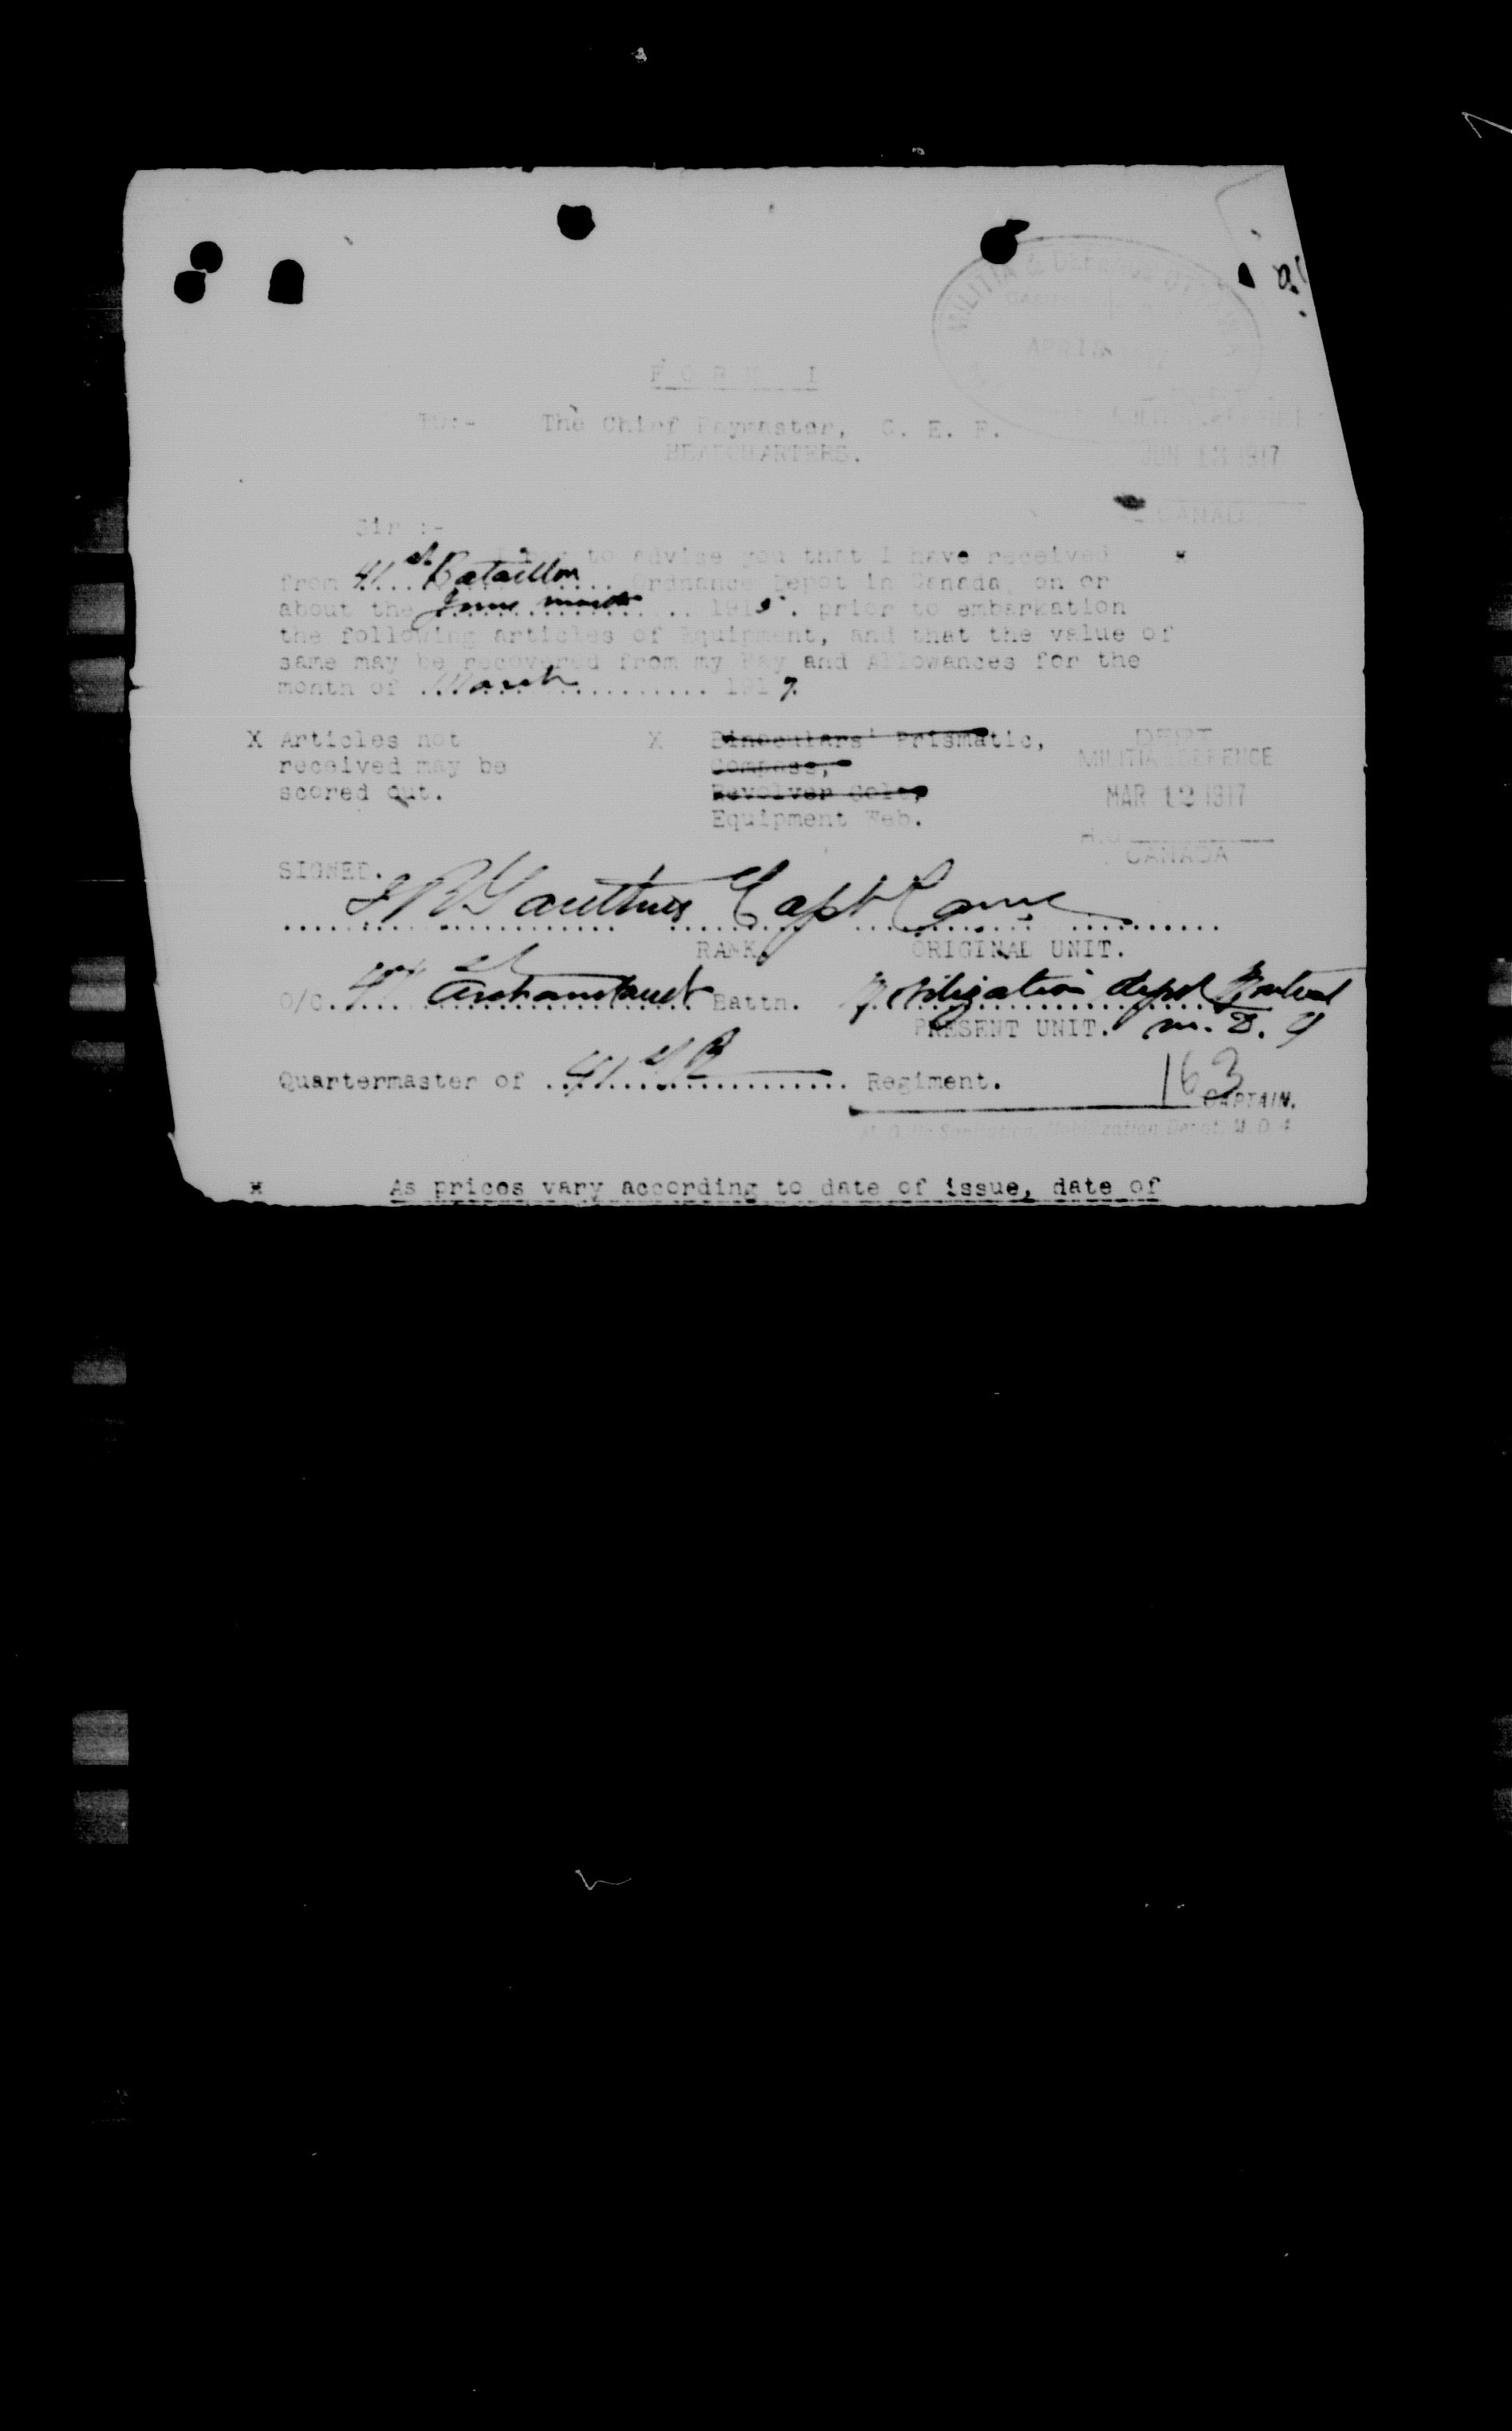 MILITIA & DEFENCE
APR 13 1917
FORM I
To:- The Chief Paymaster, C. E. F.
HEADQUARTERS.
JUN 13 1917
CANADA
Sir :-
I beg to advise you that I have received x
from 41st Bataillon Ordnance Depot in Canada, on or
about the June month 1915. prior to embarkation
the following articles of Equipment, and that the value of
same may be recovered from my Pay and Allowances for the
month of March 1917.
X Articles not X Binoculars' Prismatic,
received may be Compass,
scored out. Revolver Colt,
Equipment Web.
DEPT
MILITIA & DEFENCE
MAR 12 1917
H.Q.
CANADA
SIGNED.
Gauthier Capt Camc
RANK. ORIGINAL UNIT.
O/C. 41st Archambault Battn. Mobilization depot Montreal
PRESENT UNIT. M.D. 4
Quartermaster of 41 Regiment.
163
CAPTAIN.
M. O. i/c Sanitation, Mobilization Depot, M. D. 4
x As prices vary according to date of issue, date of